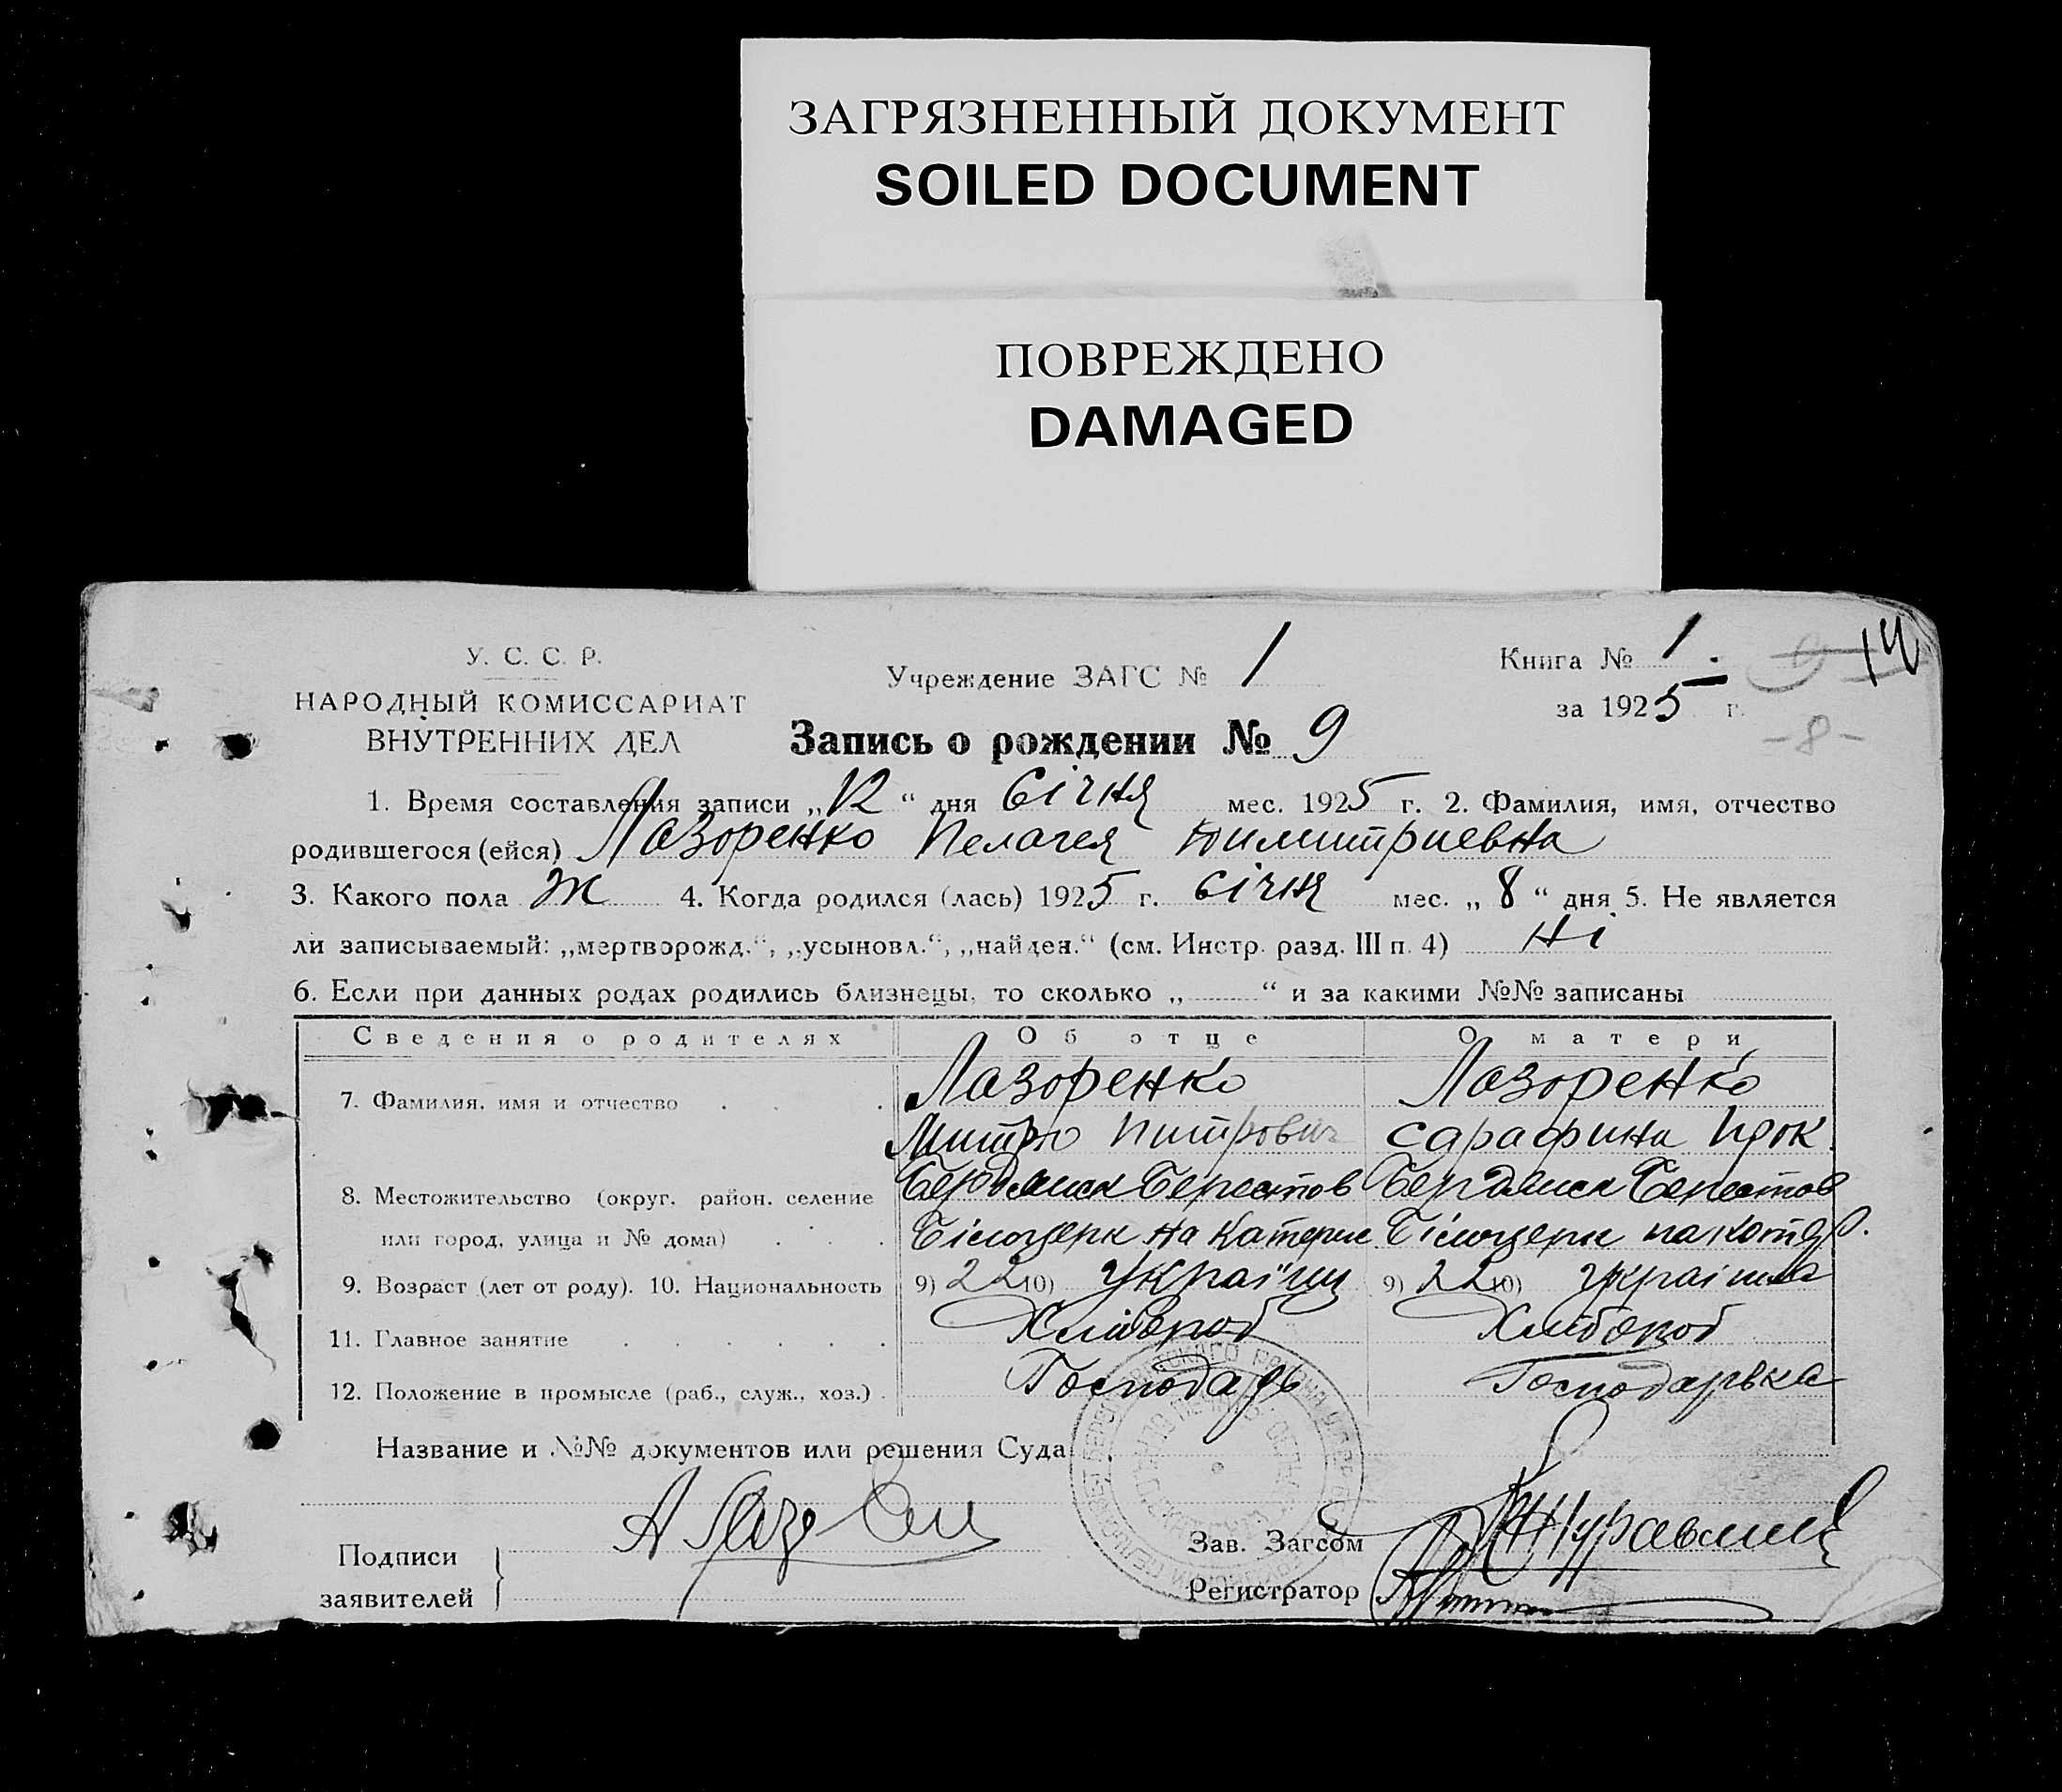 ЗАГРЯЗНЕННЫЙ ДОКУМЕНТ
SOILED DOCUMENT
ПОВРЕЖДЕНО
DAMAGED
У. С. С. Р.
НАРОДНЫЙ КОМИССАРИАТ
ВНУТРЕННИХ ДЕЛ
Учреждение ЗАГС № 1
Книга № 1.
14
за 1925 г.
-8-
Запись о рождении № 9
1. Время составления записи „12“ дня Січня мес. 1925 г. 2. Фамилия, имя, отчество
родившегося (ейся) Лазоренко Пелагея Димитриевна
3. Какого пола Ж 4. Когда родился (лась) 1925 г. січня мес. „8“ дня 5. Не является
ли записываемый: „мертворожд.“, „усыновл.“, „найден.“ (см. Инстр. разд. III п. 4) Ні
6. Если при данных родах родились близнецы, то сколько „ “ и за какими №№ записаны
Сведения о родителях Об отце О матери
7. Фамилия, имя и отчество Лазоренко Лазоренко
Митро Питрович Сарафина Прок.
8. Местожительство (округ. район. селение Бердянск Берестов Бердянск Берестов
или город, улица и № дома) Білоцерк на Катерин. Білоцерк на
9. Возраст (лет от роду). 10. Национальность 9) 22 10) Україн 9) 22 10) Україн
11. Главное занятие Хлібороб Хлібороб
12. Положение в промысле (раб., служ., хоз.) Господарь Господарька
Название и №№ документов или решения Суда
Подписи
заявителей
Зав. Загсом
Регистратор